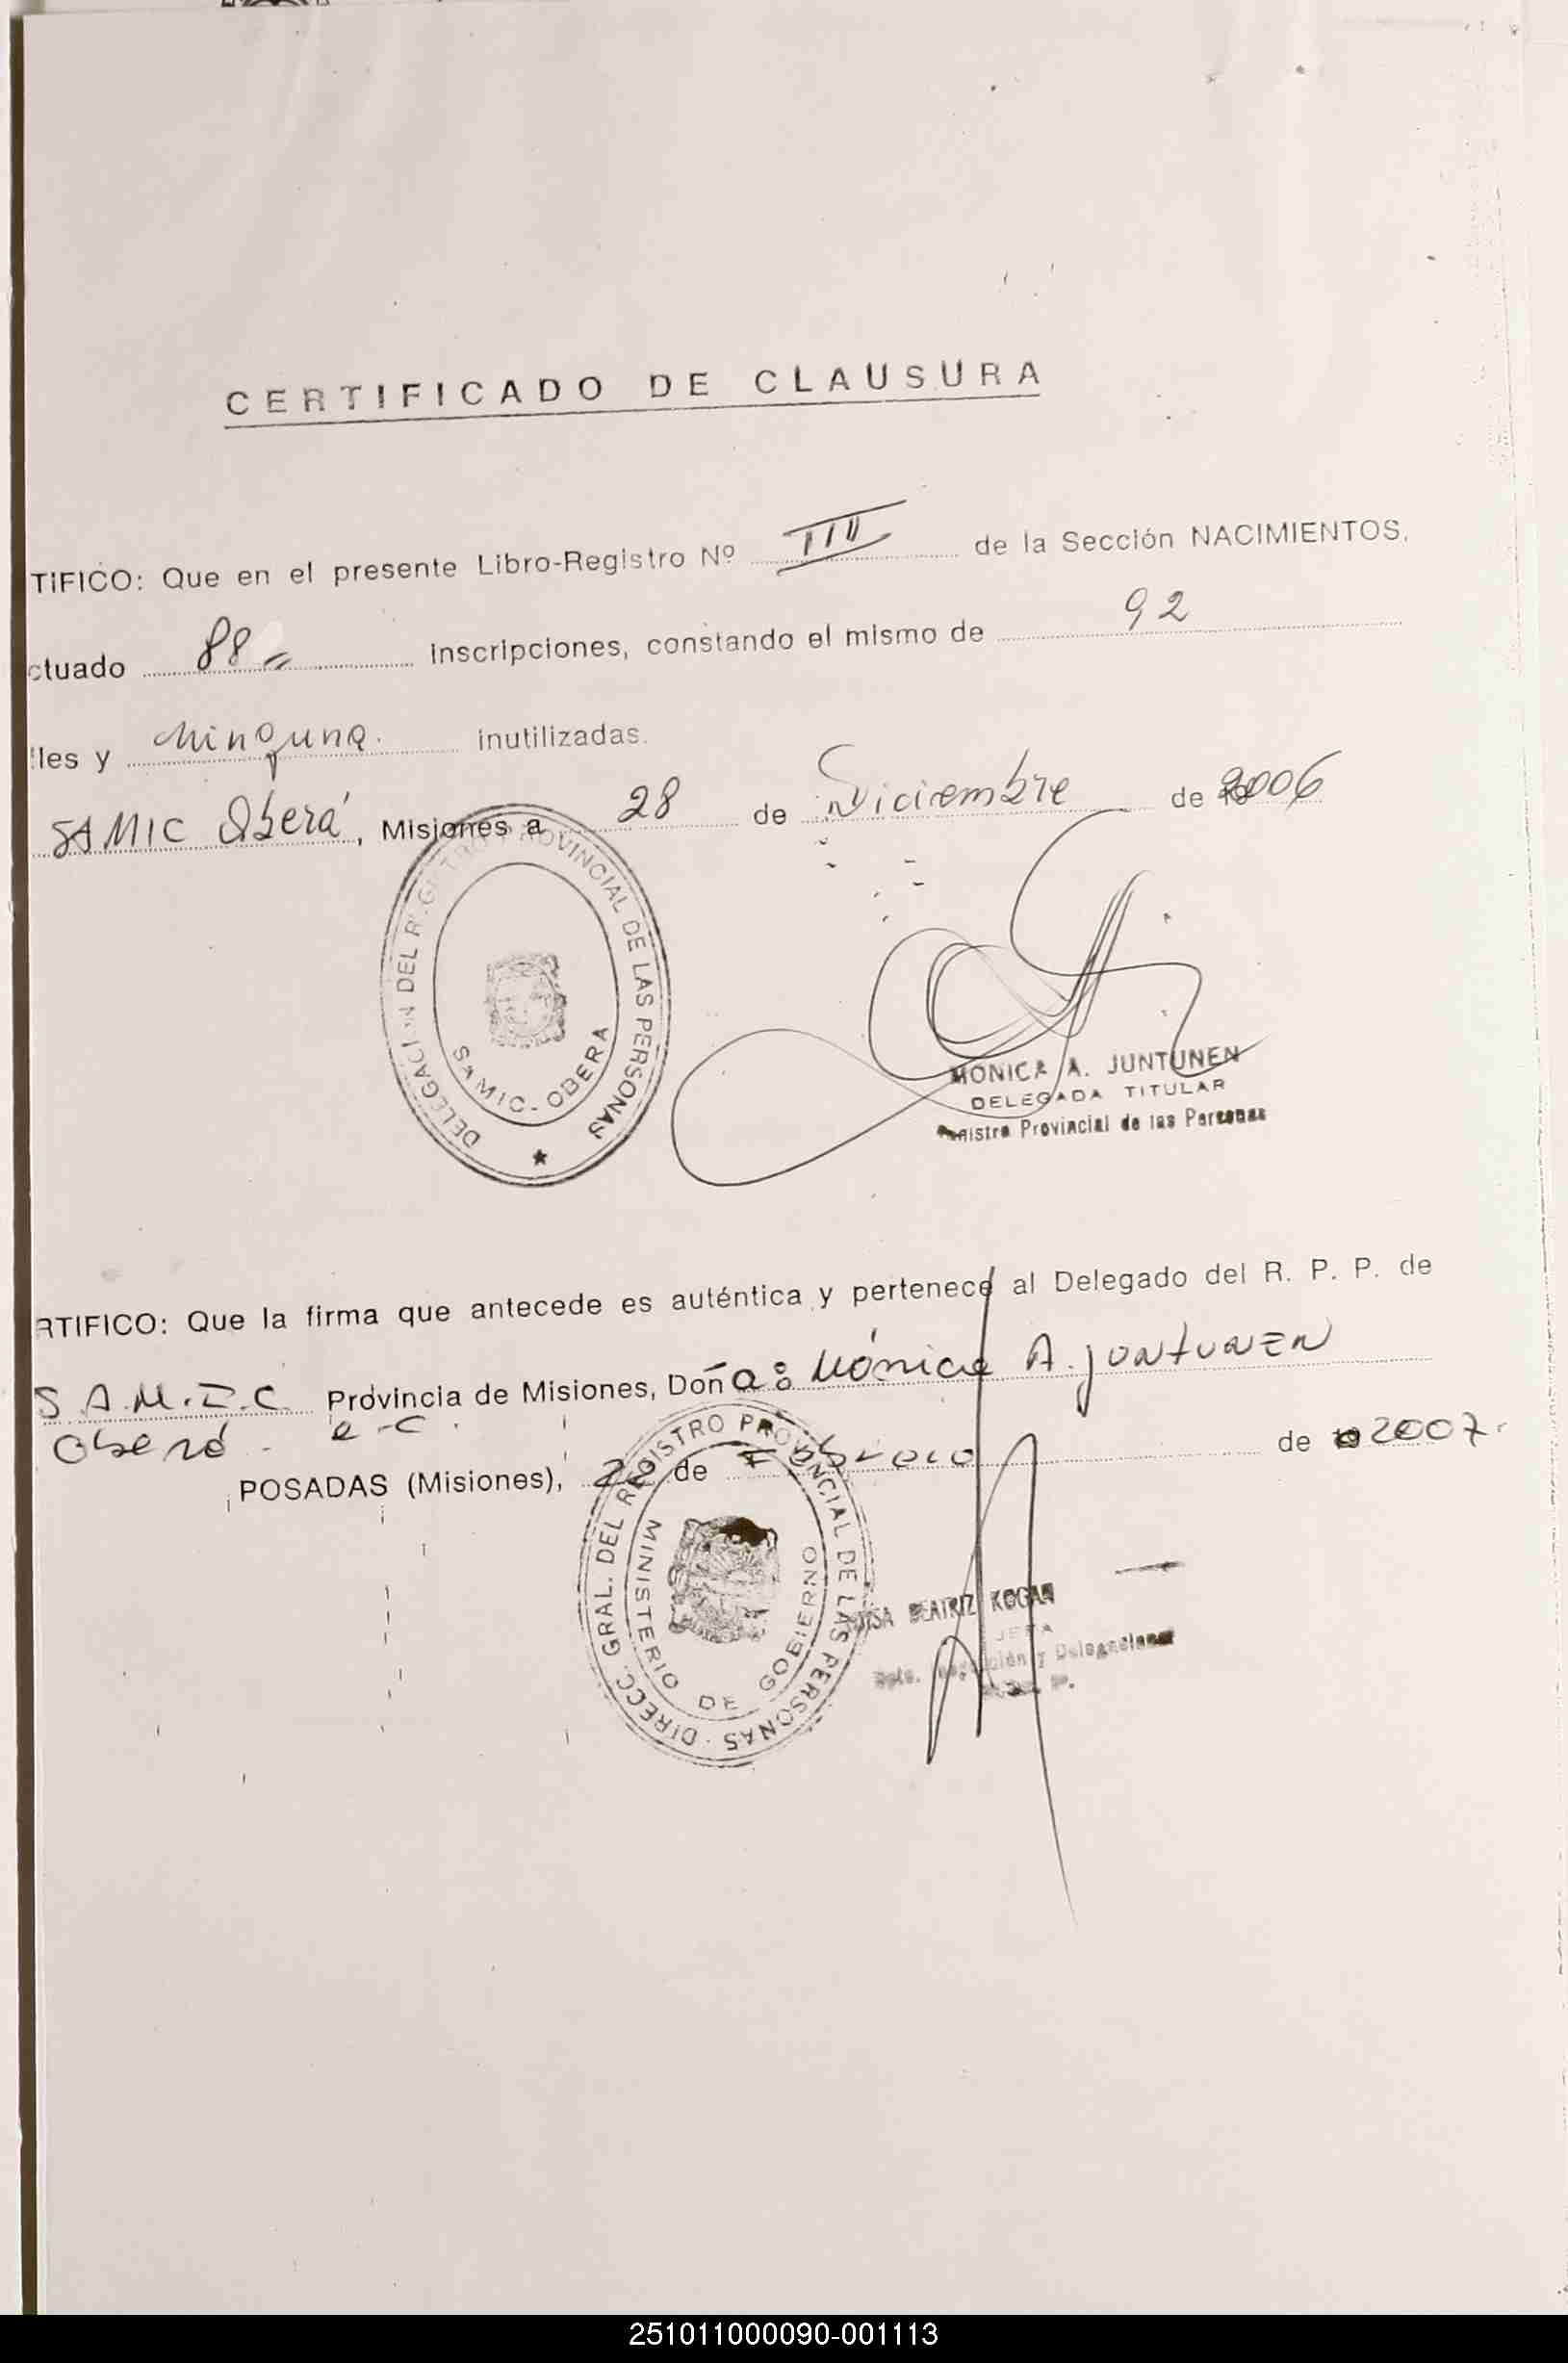 CERTIFICADO DE CLAUSURA
TIFICO: Que en el presente Libro-Registro Nº III de la Sección NACIMIENTOS,
ctuado 88 inscripciones, constando el mismo de 92
les y ninguna. inutilizadas.
SAMIC Oberá, Misiones a 28 de Diciembre de 2006
DELEGACION DEL REGISTRO PROVINCIAL DE LAS PERSONAS
SAMIC - OBERA
MONICA A. JUNTUNEN
DELEGADA TITULAR
Provincial de las Personas
RTIFICO: Que la firma que antecede es auténtica y pertenece al Delegado del R. P. P. de
S.A.M.I.C. Provincia de Misiones, Doña: Mónica A. JUNTUNEN
Oberá - e-c.
POSADAS (Misiones), de Febrero de 2007.
DIRECC. GRAL. DEL REGISTRO PROVINCIAL DE LAS PERSONAS
MINISTERIO DE GOBIERNO
BEATRIZ KOGAN
JEFA
y Delegaciones
251011000090-001113